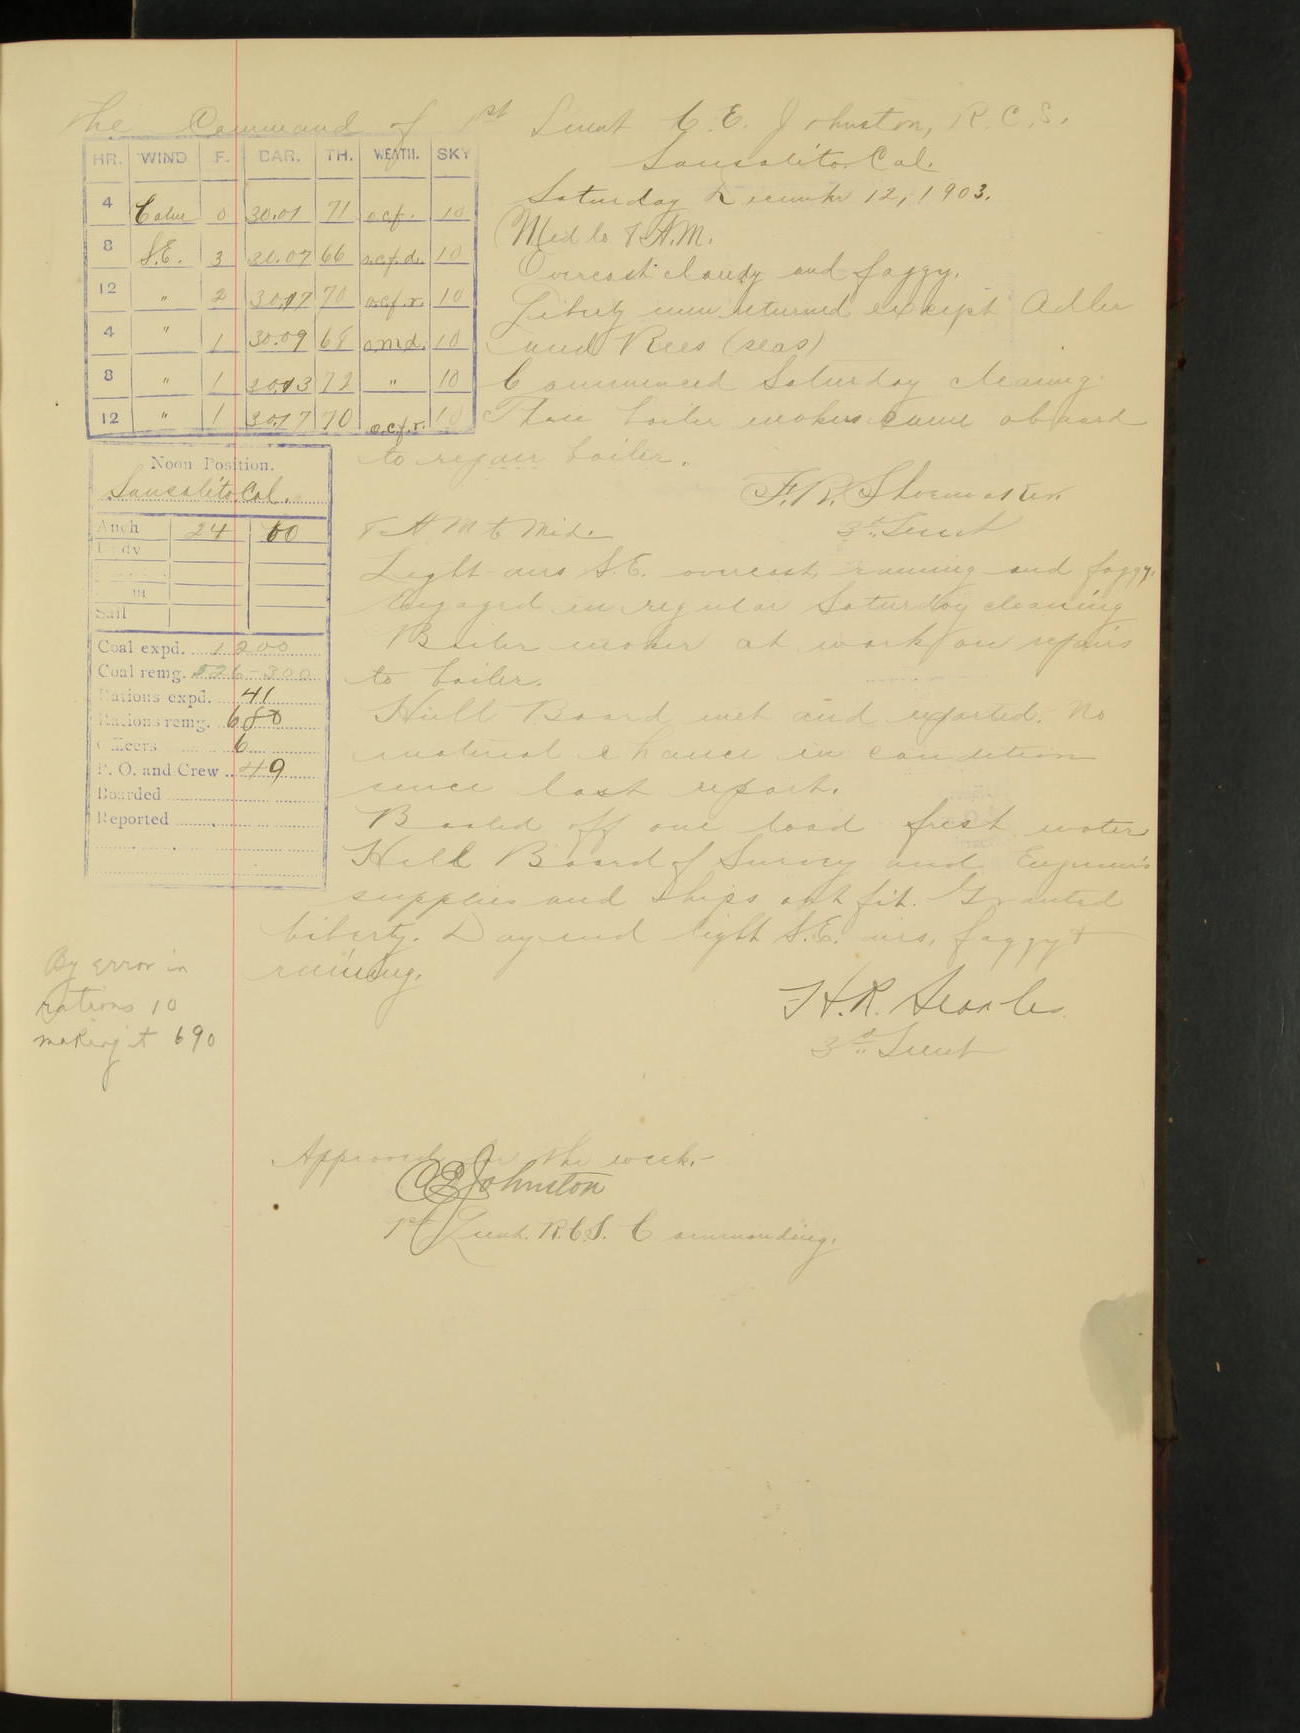 The Command of 1st Lieut C. E. Johnston, R.C.S.
Sausalito Cal.
Saturday December 12, 1903.
HR. WIND F. BAR. TH. WEATH. SKY
4 Calm 0 30.07 71 o.c.f. 10
8 S.E. 3 30.07 66 o.c.f.d. 10
12 " 2 30.17 70 o.c.f.r. 10
4 " 1 30.09 68 o.m.d. 10
8 " 1 30.13 72 " 10
12 " 1 30.17 70 o.c.f.r. 10
Mid to 8 A.M.
Overcast cloudy and foggy.
Liberty men returned except Adler
and Rees (seas)
Commenced Saturday cleaning.
Three boiler makers came aboard
to repair boiler.
F. R. Shoemaker
3d. Lieut
Noon Position.
Sausalito Cal.
Anch 24 00
Sail
Coal expd. 1200
Coal remg. 526-300
Rations expd. 41
Rations remg. 680
Officers 6
P. O. and Crew 49
Boarded
Reported
8 A M to Mid.
Light airs S.E. overcast, raining and foggy.
Engaged in regular Saturday cleaning
Boiler maker at work on repairs
to boiler.
Hull Board met and reported. No
material change in condition
since last report.
Boated off one load fresh water
Held Board of Survey and Engineer's
supplies and ships out fit. Granted
liberty. Day end light S.E. airs, foggy &
raining.
H. R. Searles
3d. Lieut
By error in
rations 10
making it 690
Approved for the week.-
C E Johnston
1st Lieut. R.C.S. Commanding.